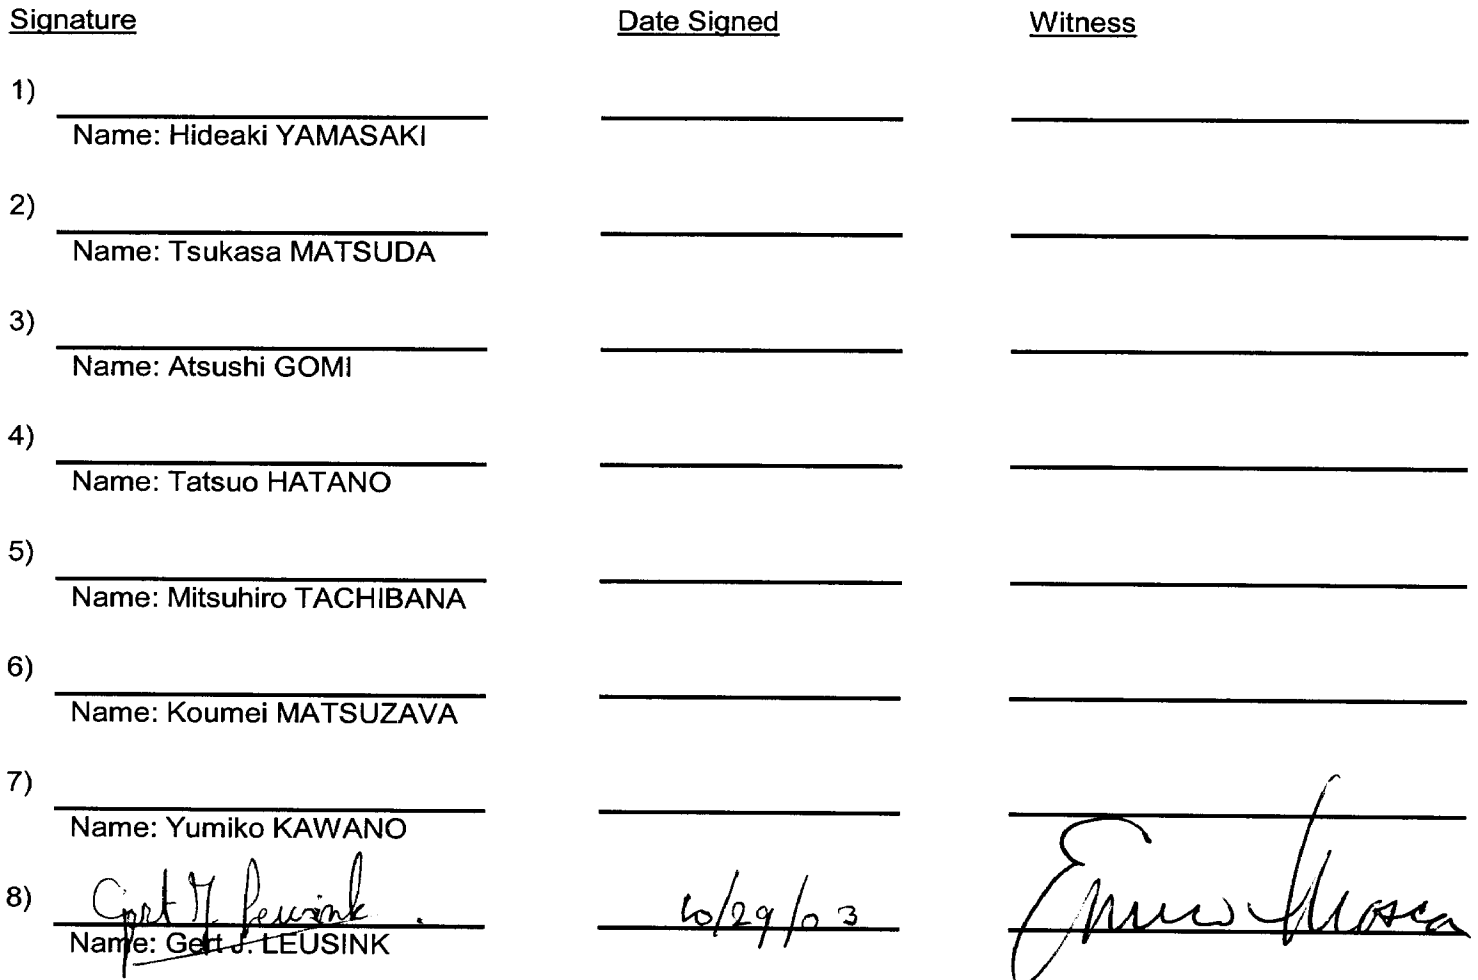 Signature Date Signed Witness
1)
Name: Hideaki YAMASAKI
2)
Name: Tsukasa MATSUDA
3)
Name: Atsushi GOMI
4)
Name: Tatsuo HATANO
5)
Name: Mitsuhiro TACHIBANA
6)
Name: Koumei MATSUZAVA
7)
Name: Yumiko KAWANO
8) Gert J. Leusink 10/29/03
Name: Gert J. LEUSINK